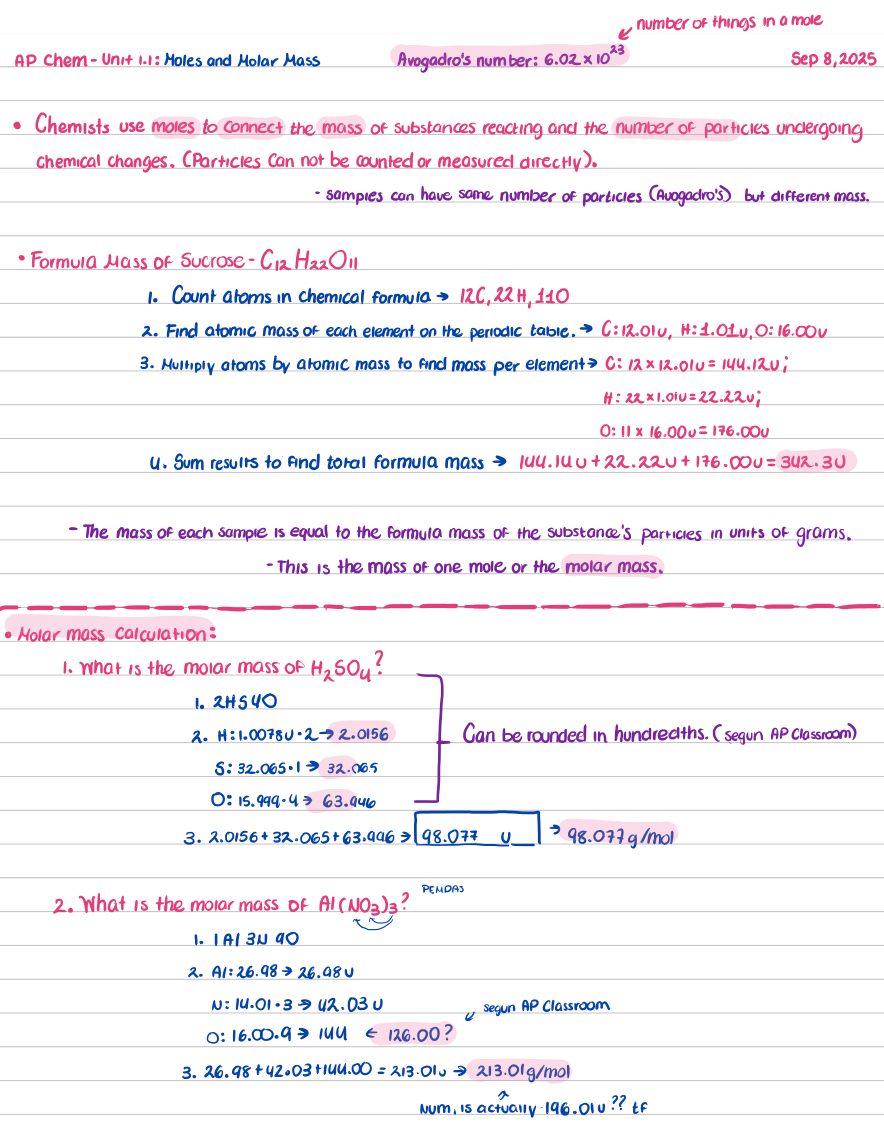 number of things in a mole
AP Chem - Unit 1.1: Moles and Molar Mass Avogadro's number: 6.02 x 10²³ Sep 8, 2025
• Chemists use moles to connect the mass of substances reacting and the number of particles undergoing
chemical changes. (Particles can not be counted or measured directly).
- samples can have same number of particles (Avogadro's) but different mass.
• Formula Mass of Sucrose - C₁₂H₂₂O₁₁
1. Count atoms in chemical formula → 12C, 22H, 11O
2. Find atomic mass of each element on the periodic table. → C: 12.01u, H: 1.01u, O: 16.00u
3. Multiply atoms by atomic mass to find mass per element → C: 12 x 12.01u = 144.12u;
H: 22 x 1.01u = 22.22u;
O: 11 x 16.00u = 176.00u
4. Sum results to find total formula mass → 144.14u + 22.22u + 176.00u = 342.3u
- The mass of each sample is equal to the formula mass of the substance's particles in units of grams.
- This is the mass of one mole or the molar mass.
• Molar mass calculation:
1. What is the molar mass of H₂SO₄?
1. 2H S 4O
2. H: 1.0078u · 2 → 2.0156
S: 32.065 · 1 → 32.065
Can be rounded in hundredths. (segun AP Classroom)
O: 15.999 · 4 → 63.996
3. 2.0156 + 32.065 + 63.996 → 98.077 u → 98.077g/mol
2. What is the molar mass of Al(NO₃)₃? PEMDAS
1. 1Al 3N 9O
2. Al: 26.98 → 26.98u
N: 14.01 · 3 → 42.03u
segun AP Classroom
O: 16.00 · 9 → 144 ← 126.00?
3. 26.98 + 42.03 + 144.00 = 213.01u → 213.01g/mol
Num. is actually 196.01u ?? tf